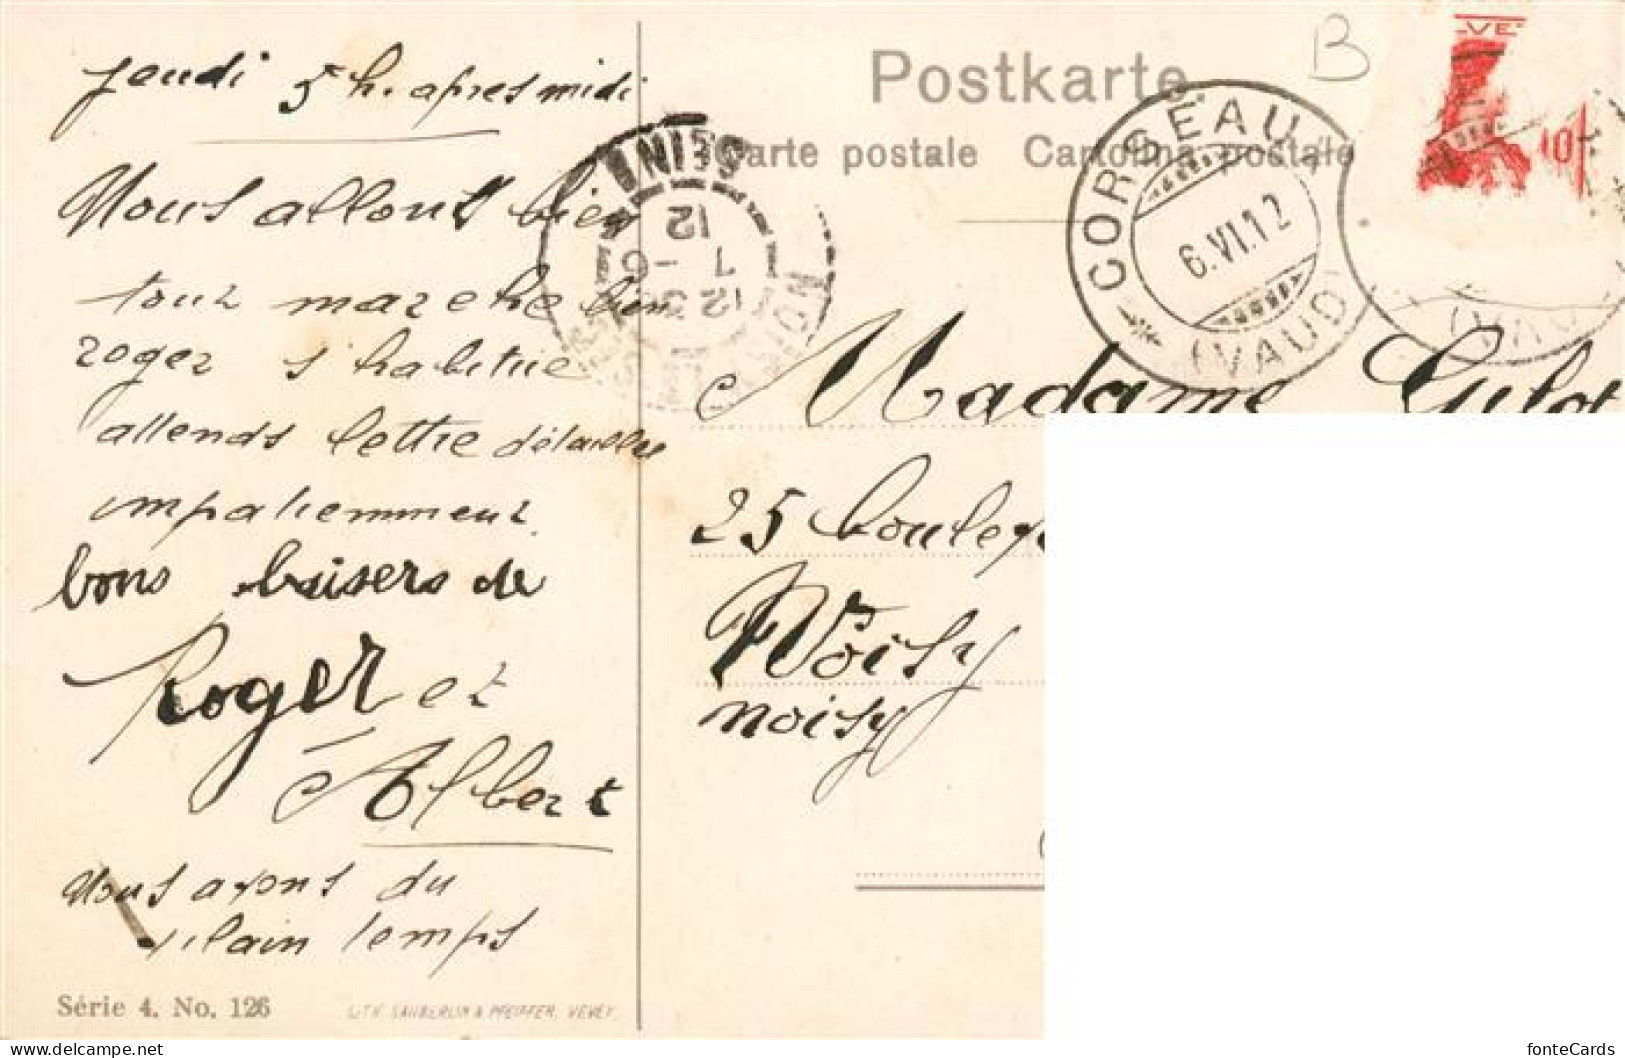 jeudi 5 h. apres midi
Nous allons bien
tout marche bien
roger s'habitue
attends lettre détaillée
impatiemment
bons baisers de
Roger et
Albert
Nous avons du
vilain temps
Série 4. No. 126
LITH. SAUBERLIN & PFEIFFER, VEVEY
B
Postkarte
Carte postale Cartolina postale
CORSEAUX
6.VI.12
(VAUD)
SEINE
12
7 - 6
12
10
Madame
25 boulev
Noisy
noisy
fonteCards